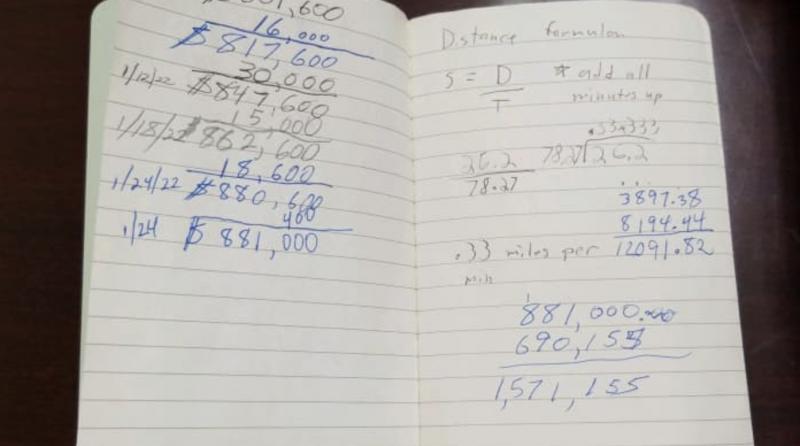 01,600
16,000
$817,600
30,000
1/12/22 $847,600
15,000
1/18/22 $862,600
18,600
1/24/22 $880,600
400
1/24 $881,000
Distance formulas
S = D * add all
T minutes up
.33.333
26.2 78.27 26.2
78.27
3897.38
8194.44
.33 miles per 12091.82
min
1
881,000.00
690,155
1,571,155